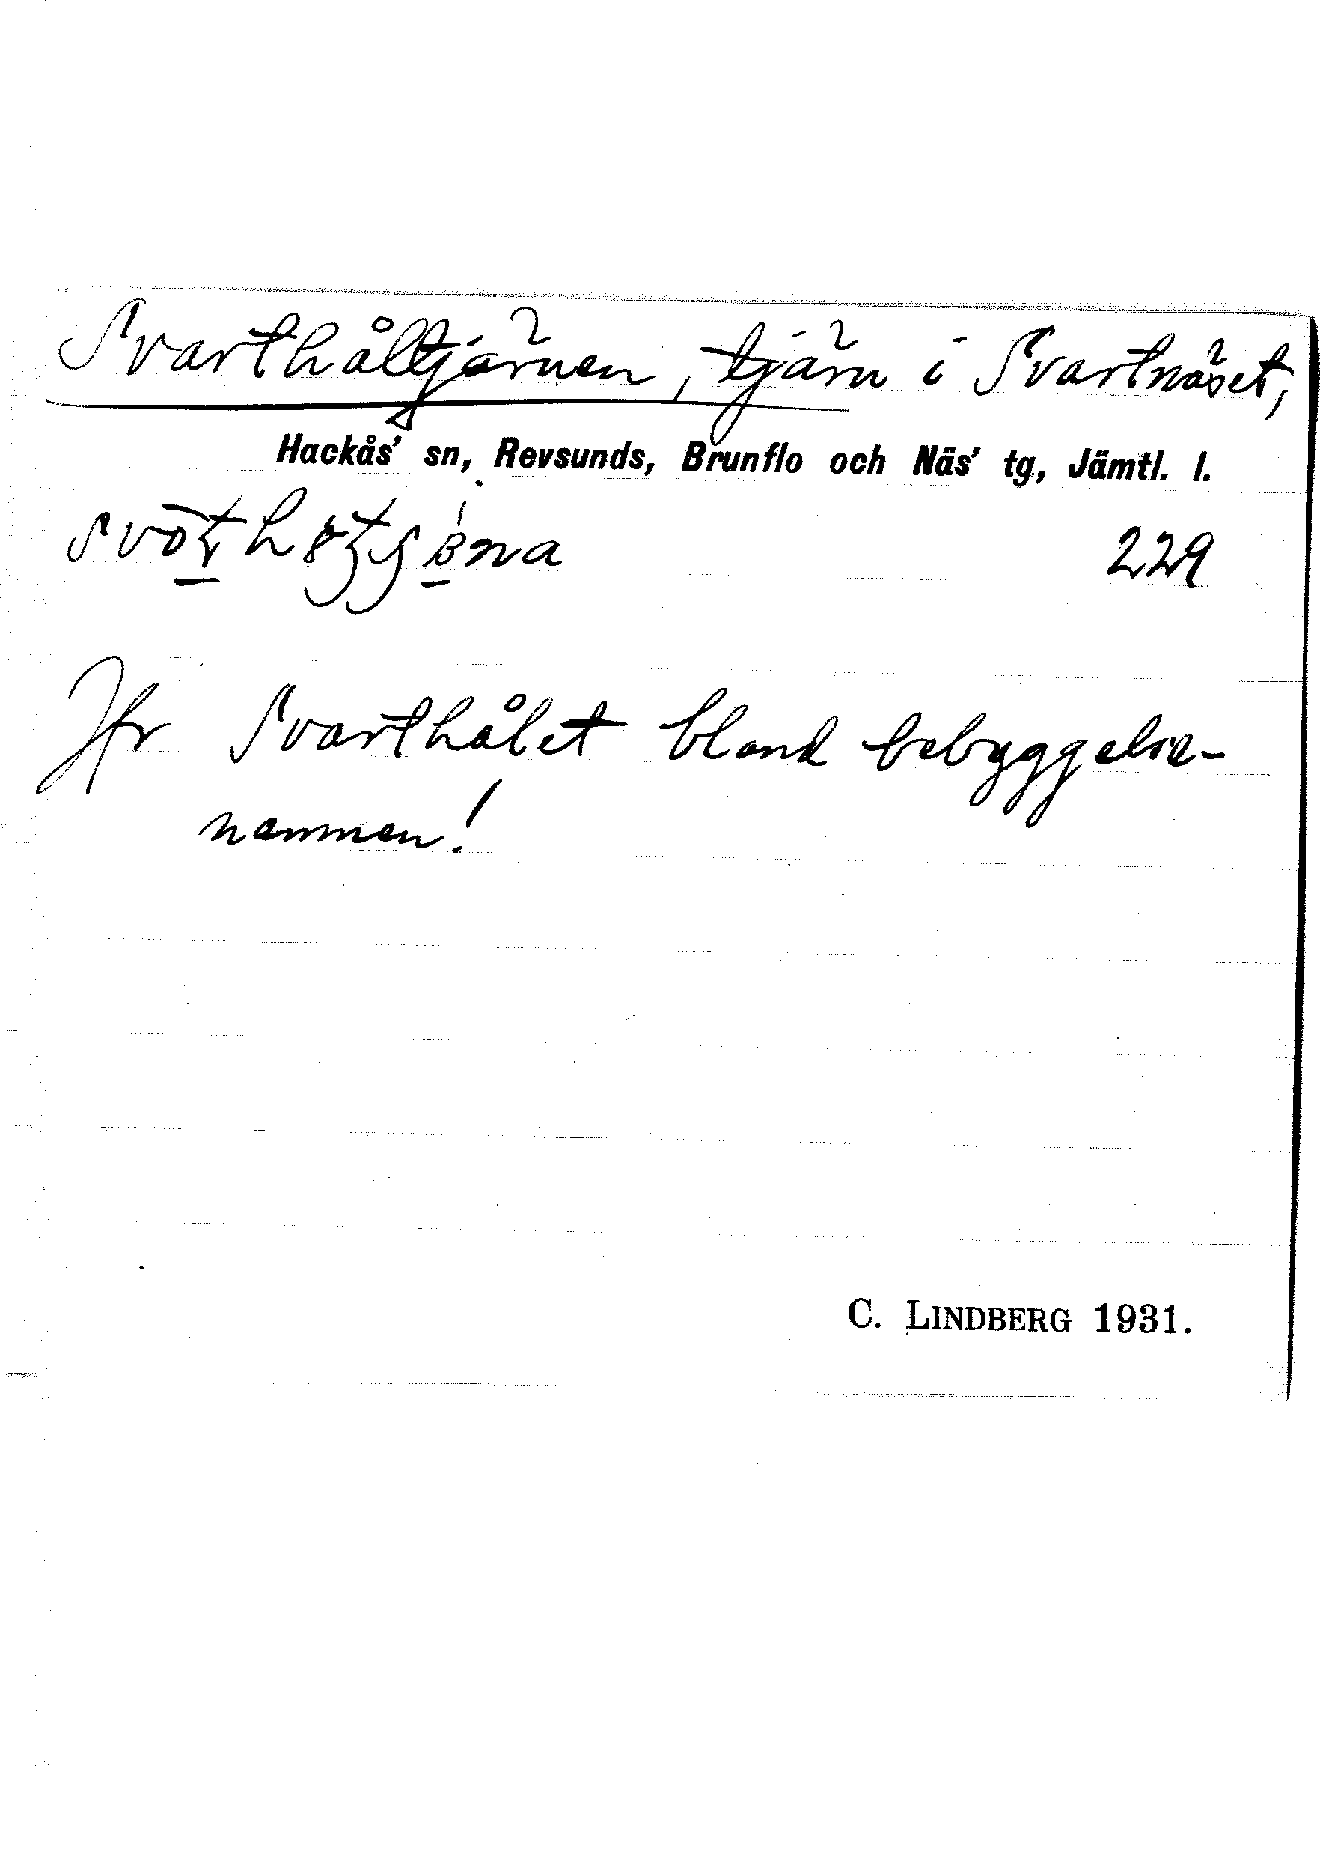 Svarthåltjärnen, tjärn i Svartnäset,
Hackås' sn, Revsunds, Brunflo och Näs' tg, Jämtl. l.
229
Jfr Svarthålet bland bebyggelse-
namnen!
C. LINDBERG 1931.